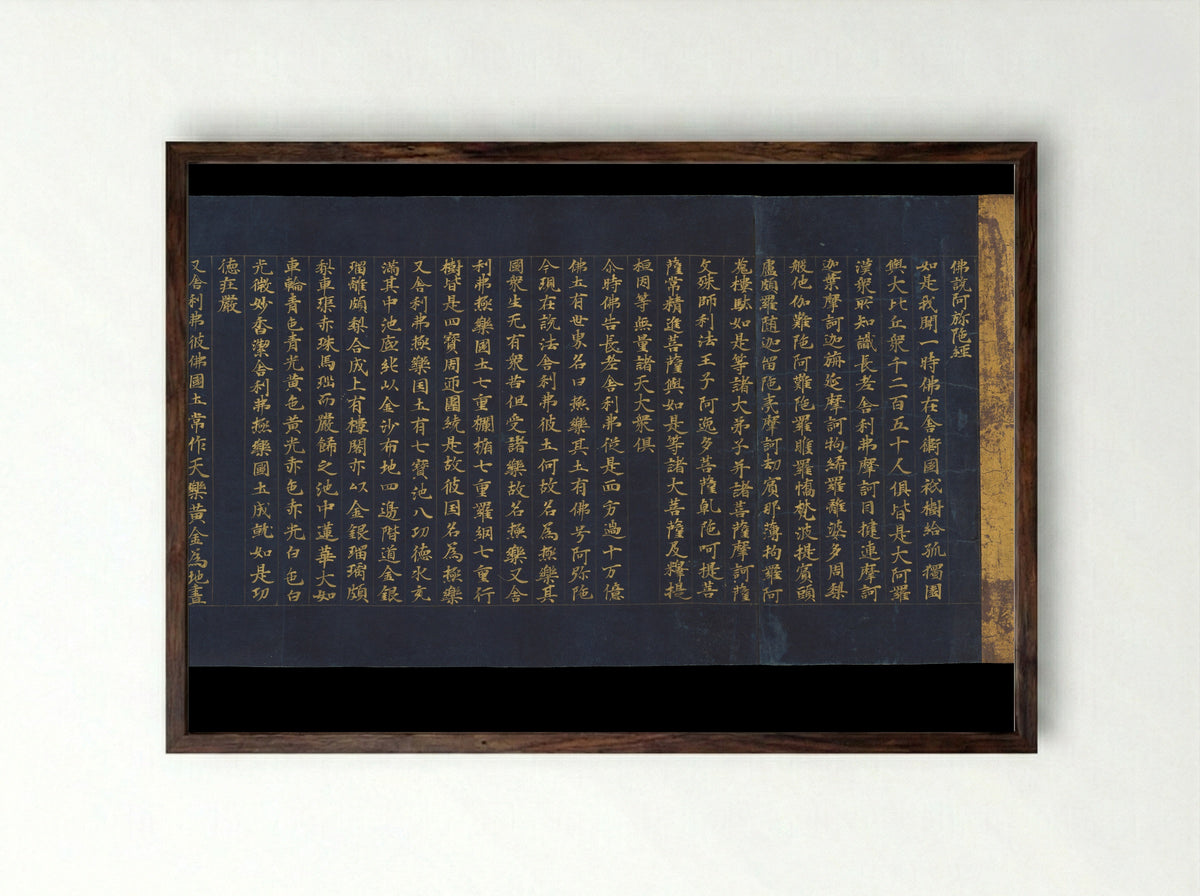 佛說阿弥陁經
如是我聞一時佛在舎衛國祇樹給孤獨園
與大比丘衆千二百五十人俱皆是大阿羅
漢衆所知識長老舎利弗摩訶目揵連摩訶
迦葉摩訶迦旃延摩訶拘絺羅離婆多周梨
般他伽難陁阿難陁羅睺羅憍梵波提賓頭
盧頗羅随迦留陁夷摩訶劫賓那薄拘羅阿
㝹樓馱如是等諸大弟子并諸菩薩摩訶薩
文殊師利法王子阿逸多菩薩乹陁呵提菩
薩常精進菩薩與如是等諸大菩薩及釋提
桓因等無量諸天大衆俱
尒時佛告長老舎利弗従是西方過十万億
佛土有世界名曰極樂其土有佛号阿弥陁
今現在說法舎利弗彼土何故名為極樂其
國衆生无有衆苦但受諸樂故名極樂又舎
利弗極樂國土七重欄楯七重羅網七重行
樹皆是四寶周迊圍繞是故彼国名為極樂
又舎利弗極樂国土有七寶池八功德水充
滿其中池底純以金沙布地四邊階道金銀
瑠離頗梨合成上有樓閣亦以金銀瑠璃頗
梨車渠赤珠馬瑙而嚴飾之池中蓮華大如
車輪青色青光黄色黄光赤色赤光白色白
光微妙香潔舎利弗極樂國土成就如是功
德莊嚴
又舎利弗彼佛國土常作天樂黄金為地晝